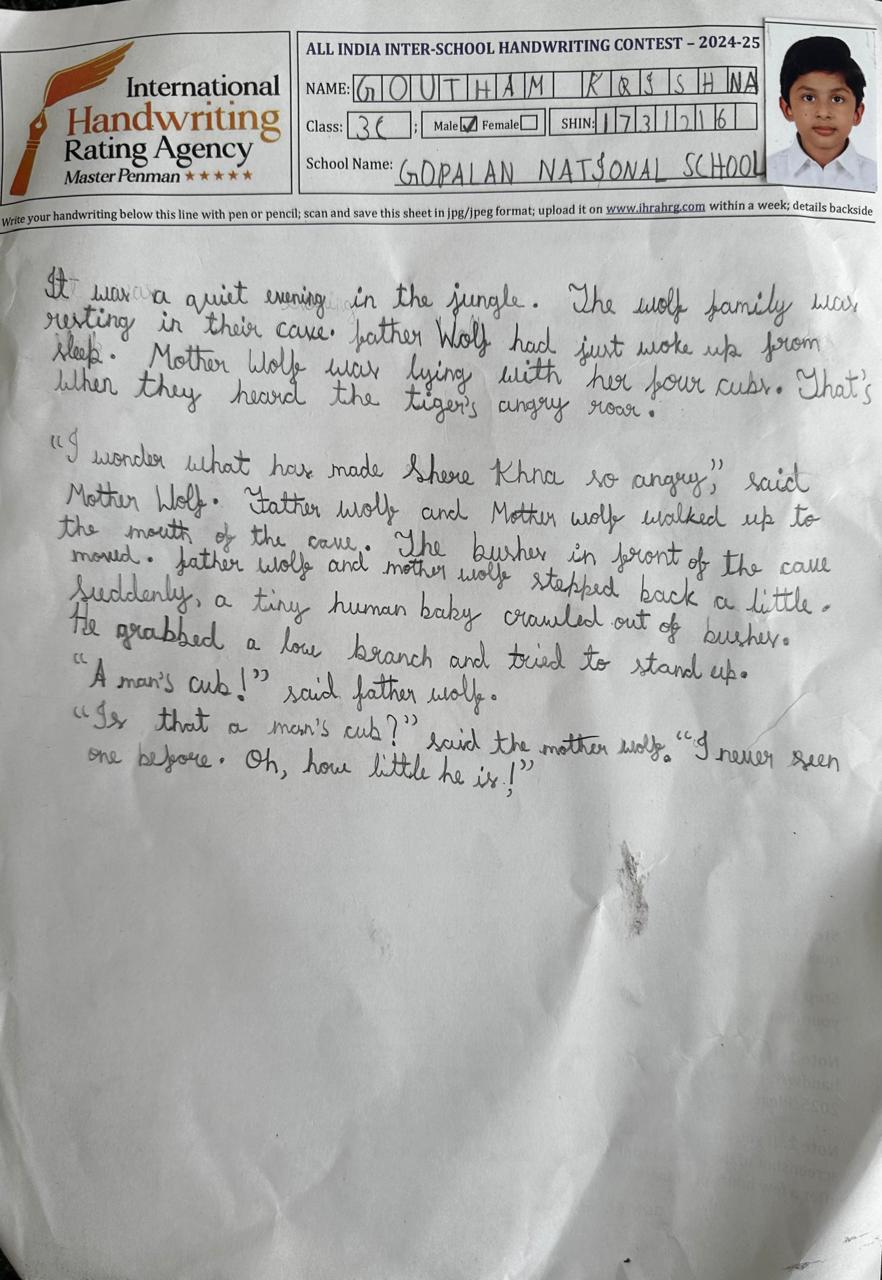 International
Handwriting
Rating Agency
Master Penman ★★★★★
ALL INDIA INTER-SCHOOL HANDWRITING CONTEST – 2024-25
NAME: GOUTHAM KRISHNA
Class: 3C ; Male ✓ Female SHIN: 1731216
School Name: GOPALAN NATIONAL SCHOOL
Write your handwriting below this line with pen or pencil; scan and save this sheet in jpg/jpeg format; upload it on www.ihrahrg.com within a week; details backside
It was a quiet evening in the jungle. The wolf family was
resting in their cave. father Wolf had just woke up from
sleep. Mother Wolf was lying with her four cubs. That's
when they heard the tiger's angry roar.
“I wonder what has made Shere Khna so angry,” said
Mother Wolf. Father wolf and Mother wolf walked up to
the mouth of the cave. The bushes in front of the cave
moved. father wolf and mother wolf stepped back a little.
Suddenly, a tiny human baby crawled out of bushes.
He grabbed a low branch and tried to stand up.
“A man's cub!” said father wolf.
“Is that a man's cub?” said the mother wolf. “I never seen
one before. Oh, how little he is!”